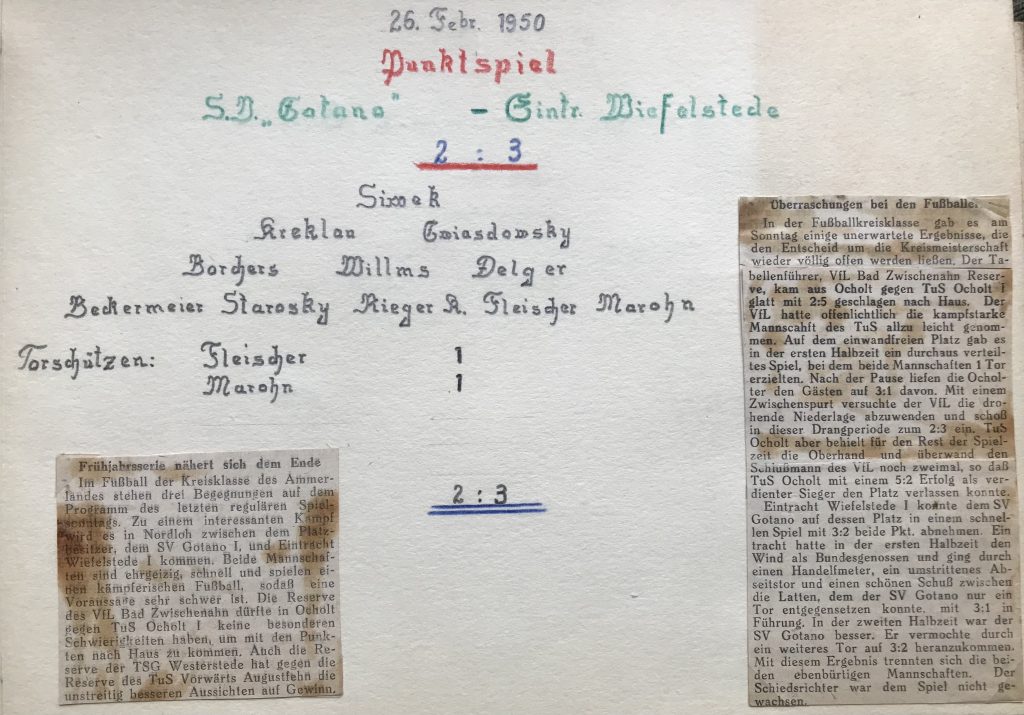 26. Febr. 1950
Punktspiel
S.V. „Gotano" - Eintr. Wiefelstede
2 : 3
Simek
Kreklau Gwiasdowsky
Borchers Willms Delger
Beckermeier Starosky Rieger K. Fleischer Marohn
Torschützen: Fleischer 1
Marohn 1
2 : 3
Frühjahrsserie nähert sich dem Ende
Im Fußball der Kreisklasse des Ammer-
landes stehen drei Begegnungen auf dem
Programm des letzten regulären Spiel-
sonntags. Zu einem interessanten Kampf
wird es in Nordloh zwischen dem Platz-
besitzer, dem SV Gotano I, und Eintracht
Wiefelstede I kommen. Beide Mannschaf-
ten sind ehrgeizig, schnell und spielen ei-
nen kämpferischen Fußball, sodaß eine
Voraussage sehr schwer ist. Die Reserve
des VfL Bad Zwischenahn dürfte in Ocholt
gegen TuS Ocholt I keine besonderen
Schwierigkeiten haben, um mit den Punk-
ten nach Haus zu kommen. Auch die Re-
serve der TSG Westerstede hat gegen die
Reserve des TuS Vorwärts Augustfehn die
unstreitig besseren Aussichten auf Gewinn.
Überraschungen bei den Fußballe
In der Fußballkreisklasse gab es am
Sonntag einige unerwartete Ergebnisse, die
den Entscheid um die Kreismeisterschaft
wieder völlig offen werden ließen. Der Ta-
bellenführer, VfL Bad Zwischenahn Reser-
ve, kam aus Ocholt gegen TuS Ocholt I
glatt mit 2:5 geschlagen nach Haus. Der
VfL hatte offenlichtlich die kampfstarke
Mannscahft des TuS allzu leicht genom-
men. Auf dem einwandfreien Platz gab es
in der ersten Halbzeit ein durchaus verteil-
tes Spiel, bei dem beide Mannschaften 1 Tor
erzielten. Nach der Pause liefen die Ochol-
ter den Gästen auf 3:1 davon. Mit einem
Zwischenspurt versuchte der VfL die dro-
hende Niederlage abzuwenden und schoß
in dieser Drangperiode zum 2:3 ein. TuS
Ocholt aber behielt für den Rest der Spiel-
zeit die Oberhand und überwand den
Schlußmann des VfL noch zweimal, so daß
TuS Ocholt mit einem 5:2 Erfolg als ver-
dienter Sieger den Platz verlassen konnte.
Eintracht Wiefelstede I konnte dem SV
Gotano auf dessen Platz in einem schnel-
len Spiel mit 3:2 beide Pkt. abnehmen. Ein
tracht hatte in der ersten Halbzeit den
Wind als Bundesgenossen und ging durch
einen Handelfmeter, ein umstrittenes Ab-
seitstor und einen schönen Schuß zwischen
die Latten, dem der SV Gotano nur ein
Tor entgegensetzen konnte, mit 3:1 in
Führung. In der zweiten Halbzeit war der
SV Gotano besser. Er vermochte durch
ein weiteres Tor auf 3:2 heranzukommen.
Mit diesem Ergebnis trennten sich die bei-
den ebenbürtigen Mannschaften. Der
Schiedsrichter war dem Spiel nicht ge-
wachsen.